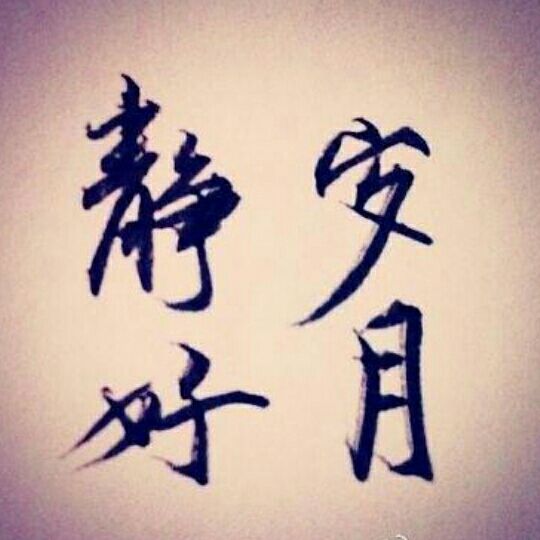 岁月
静好